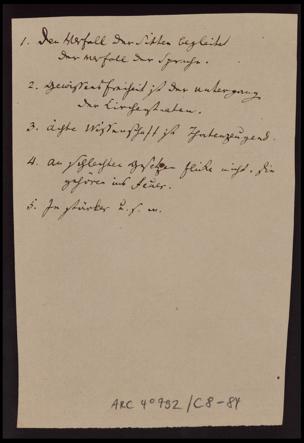 1. Den Verfall der Sitten begleitet
der Verfall der Sprache.
2. Gewissensfreiheit ist der Untergang
der Kirchenstaaten.
3. Ächte Wissenschaft ist Thatenzeugend.
4. An schlechten Gesetzen flicke nicht. Sie
gehören ins Feuer.
5. Je stärker u. s. w.
ARC 4° 792 / C8-84